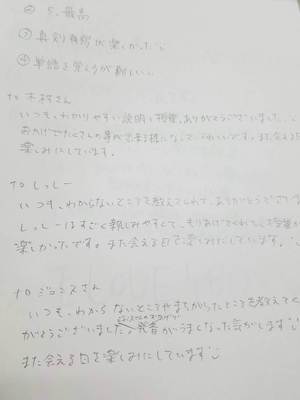 ② 5. 最高
③ 真剣勝負が楽しかった
④ 単語を覚えるのが難しい
to 木村さん
いつも、わかりやすい説明と授業、ありがとうございました。
おかげでたくさんの事が出来る様になってうれしいです。また会える日
楽しみにしています。
to しっしー
いつも、わからないところを教えてくれて、ありがとうございま
しっしーはすごく親しみやすくて、もりあげてくれたり授業が
楽しかったです。また会える日を楽しみにしています。
to ジョニスさん
いつも、わからないところやまちがったところを教えてく
がとうございました。発音がうまくなった気がします
また会える日を楽しみにしています